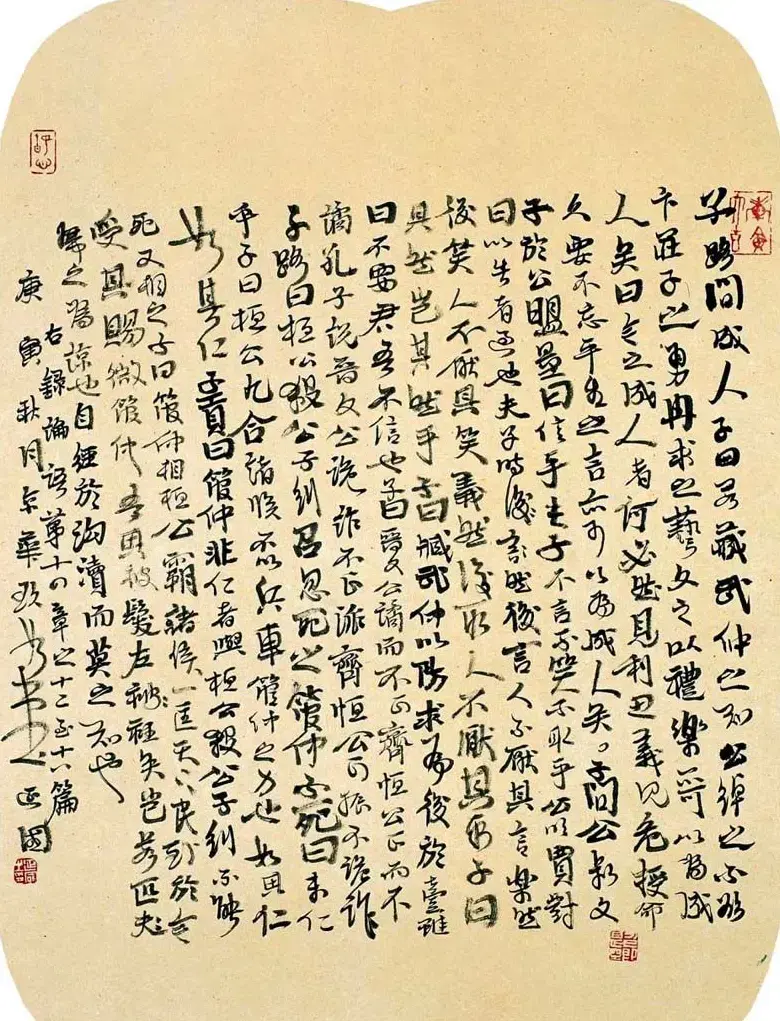 子路問成人子曰若臧武仲之知公綽之不欲
卞莊子之勇冉求之藝文之以禮樂亦可以為成
人矣曰今之成人者何必然見利思義見危授命
久要不忘平生之言亦可以為成人矣子問公叔文
子於公明賈曰信乎夫子不言不笑不取乎公明賈對
曰以告者過也夫子時後言然後言人不厭其言樂然
後笑人不厭其笑義然後取人不厭其取子曰
其然豈其然乎子曰臧武仲以防求為後於魯雖
曰不要君吾不信也子曰晉文公譎而不正齊桓公正而不
譎孔子說晉文公詭詐不正派齊恒公可振不詭詐
子路曰桓公殺公子糾召忽死之管仲不死曰未仁
乎子曰桓公九合諸侯不以兵車管仲之力也如其仁
如其仁子貢曰管仲非仁者與桓公殺公子糾不能
死又相之子曰管仲相桓公霸諸侯一匡天下民到於今
受其賜微管仲吾其被髮左衽矣豈若匹夫
婦之為諒也自經於溝瀆而莫之知也
右錄論語第十四章之十二至十六篇
庚寅秋月京華